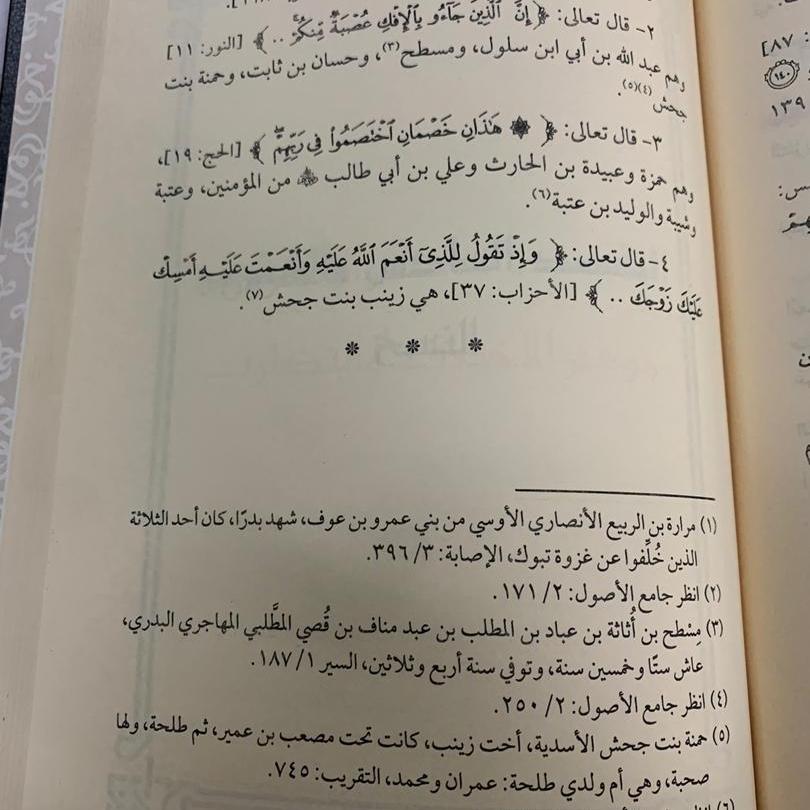 ٢- قال تعالى: ﴿ إِنَّ ٱلَّذِينَ جَآءُو بِٱلْإِفْكِ عُصْبَةٌ مِّنكُمْ .. ﴾ [النور: ١١]
وهم عبد الله بن أبي ابن سلول، ومسطح(٣)، وحسان بن ثابت، وحمنة بنت
جحش(٤)(٥).
٣- قال تعالى: ﴿ ۞ هَٰذَانِ خَصْمَانِ ٱخْتَصَمُوا۟ فِى رَبِّهِمْ ﴾ [الحج: ١٩]،
وهم حمزة وعبيدة بن الحارث وعلي بن أبي طالب من المؤمنين، وعتبة
وشيبة والوليد بن عتبة(٦).
٤- قال تعالى: ﴿ وَإِذْ تَقُولُ لِلَّذِىٓ أَنْعَمَ ٱللَّهُ عَلَيْهِ وَأَنْعَمْتَ عَلَيْهِ أَمْسِكْ
عَلَيْكَ زَوْجَكَ .. ﴾ [الأحزاب: ٣٧]، هي زينب بنت جحش(٧).
* * *
(١) مرارة بن الربيع الأنصاري الأوسي من بني عمرو بن عوف، شهد بدرًا، كان أحد الثلاثة
الذين خُلِّفوا عن غزوة تبوك، الإصابة: ٣/ ٣٩٦.
(٢) انظر جامع الأصول: ٢/ ١٧١.
(٣) مِسْطح بن أُثاثة بن عباد بن المطلب بن عبد مناف بن قُصي المطَّلبي المهاجري البدري،
عاش ستًا وخمسين سنة، وتوفي سنة أربع وثلاثين، السير ١/ ١٨٧.
(٤) انظر جامع الأصول: ٢/ ٢٥٠.
(٥) حمنة بنت جحش الأسدية، أخت زينب، كانت تحت مصعب بن عمير، ثم طلحة، ولها
صحبة، وهي أم ولدي طلحة: عمران ومحمد، التقريب: ٧٤٥.
٨٧]
١٤٠
١٣٩